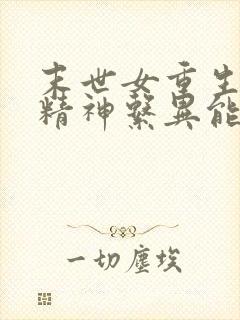 末世女重生
精神繫異能
一切塵埃